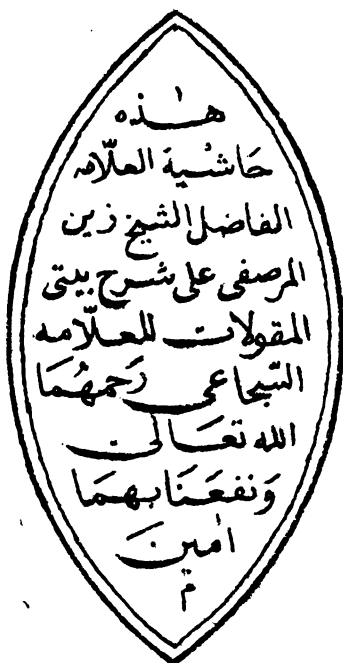 هذه
حاشية العلامه
الفاضل الشيخ زين
المرصفى على شرح بيتى
المقولات للعلامه
السجاعى رحمهما
الله تعالى
ونفعنا بهما
امين
م